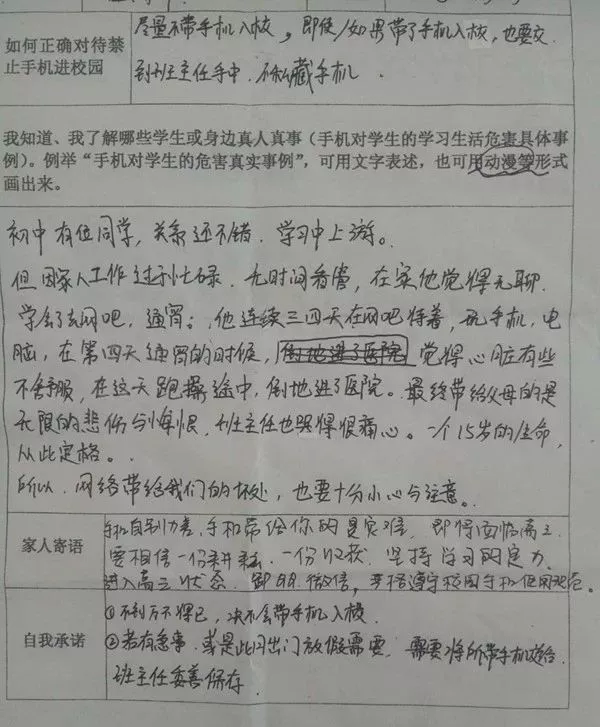 如何正确对待禁
止手机进校园
尽量不带手机入校，即使/如果带了手机入校，也要交
到班主任手中，不私藏手机．
我知道、我了解哪些学生或身边真人真事（手机对学生的学习生活危害具体事
例）。例举“手机对学生的危害真实事例”，可用文字表述，也可用动漫等形式
画出来。
初中有位同学，关系还不错．学习中上游。
但因家人工作过于忙碌．无时间看管，在家他觉得无聊．
学会了去网吧，通宵；他连续三四天在网吧待着，玩手机，电
脑，在第四天通宵的时候，倒地进了医院 觉得心脏有些
不舒服，在这天跑操途中，倒地进了医院。最终带给父母的是
无限的悲伤与悔恨．班主任也哭得很痛心。一个15岁的生命，
从此定格。
所以．网络带给我们的坏处，也要十分小心与注意。
家人寄语
自制力差，手机带给你的是灾难．即得面临高三．
要相信一份耕耘．一份收获．坚持学习的定力．
进入高三状态．卸QQ.微信，严格遵守校园手机使用规范。
自我承诺
①不到万不得已，决不会带手机入校．
②若有急事．或是出门放假需要．需要将所带手机送给
班主任妥善保存．